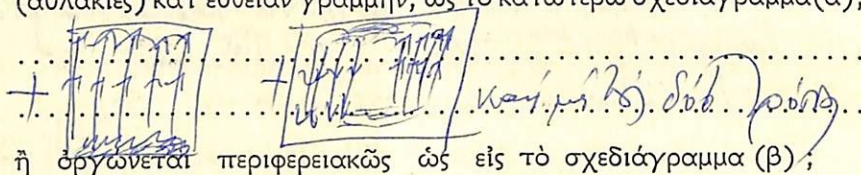 (αὐλακιές) κατ' εὐθεῖαν γραμμήν, ὡς τὸ κατωτέρω σχεδιάγραμμα (α),
καὶ μὲ
ἢ ὀργώνεται περιφερειακῶς ὡς εἰς τὸ σχεδιάγραμμα (β) ;